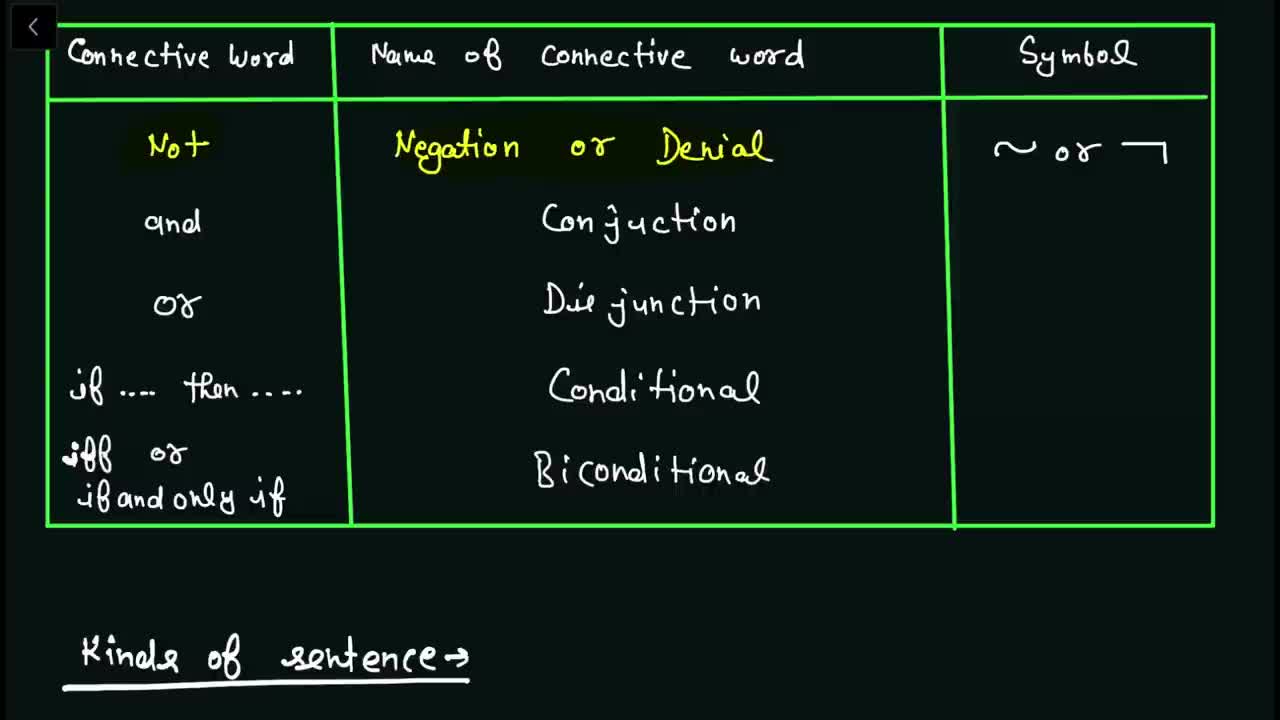 Connective Word Name of connective word Symbol
Not Negation or Denial ~ or ¬
and Conjuction
or Disjunction
if .... then ..... Conditional
iff or
if and only if Biconditional
Kinds of sentence→